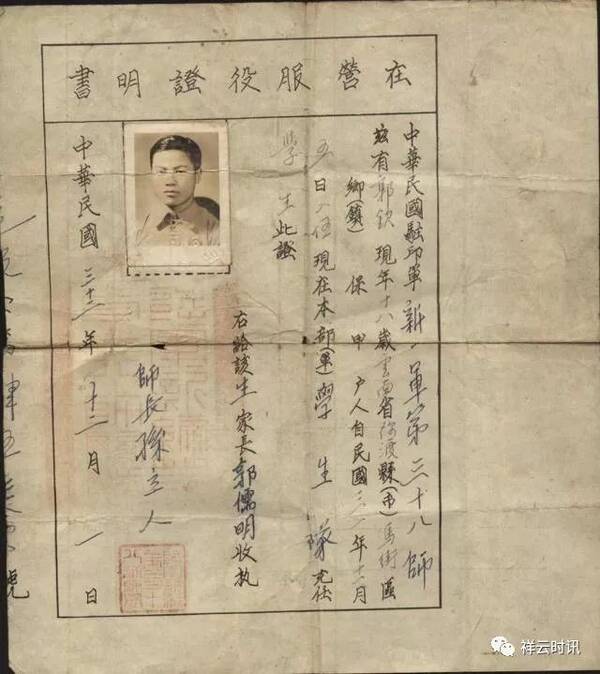 在營服役證明書
中華民國駐印軍新一軍第三十八師
茲有郭欽現年十八歲雲南省彌渡縣(市)馬街區
鄉(鎮) 保 甲 戶人自民國三一年十一月
五日入伍現在本部(軍)學生隊充任
學生此證
右給該生家長郭儒明收執
師長孫立人
中華民國三十三年十二月一日
祥云时讯